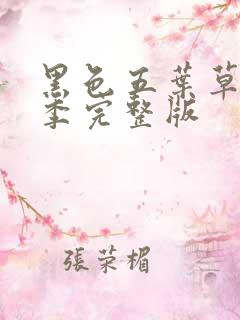 黑色五葉草
季完整版
張荣楣